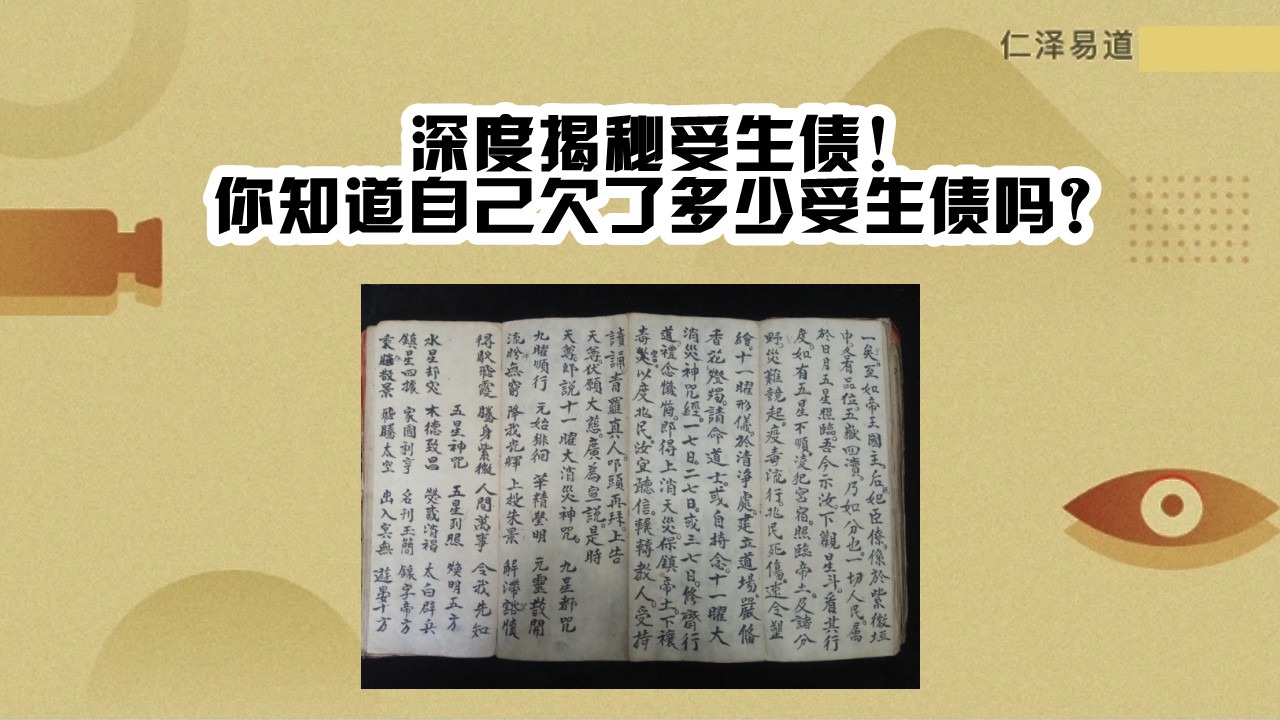 仁泽易道
深度揭秘受生债!
你知道自己欠了多少受生债吗?
一矣。至如帝王國主。后妃臣僚。像於紫微垣
中。各有品位。五嶽四瀆。乃如分也。一切人民。屬
於日月五星照臨。吾今示汝。下觀星斗。看其行
度。如有五星不順。淩犯宮宿。照臨帝土。及諸分
野。災難競起。疫毒流行。兆民死傷。速令塑
繪。十一曜形儀。於清淨處。建立道場。嚴備
香花燈燭。請命道士。或自持念十一曜大
消災神咒經。一七日。二七日。或三七日。修齋行
道。禮念懺悔。即得上消天災。保鎮帝土。下禳
毒害以度兆民。汝宜聽信。轉教人。受持
讀誦青羅真人。叩頭再拜。上告
天尊。伏願大慈廣為宣說。是時
天尊。即說十一曜大消災神咒。 九星都咒
九曜順行 元始徘徊 華精瑩明 元靈散開
流盻無窮 降我光輝 上投朱景 解滯豁懷
得馭飛霞 騰身紫微 人間萬事 令我先知
五星神咒 五星列照 煥明五方
水星却災 木德致昌 熒惑消禍 太白辟兵
鎮星四據 家國利亨 名刊玉簡 錄字帝方
乘飇散景 飛騰太空 出入冥無 遊宴十方